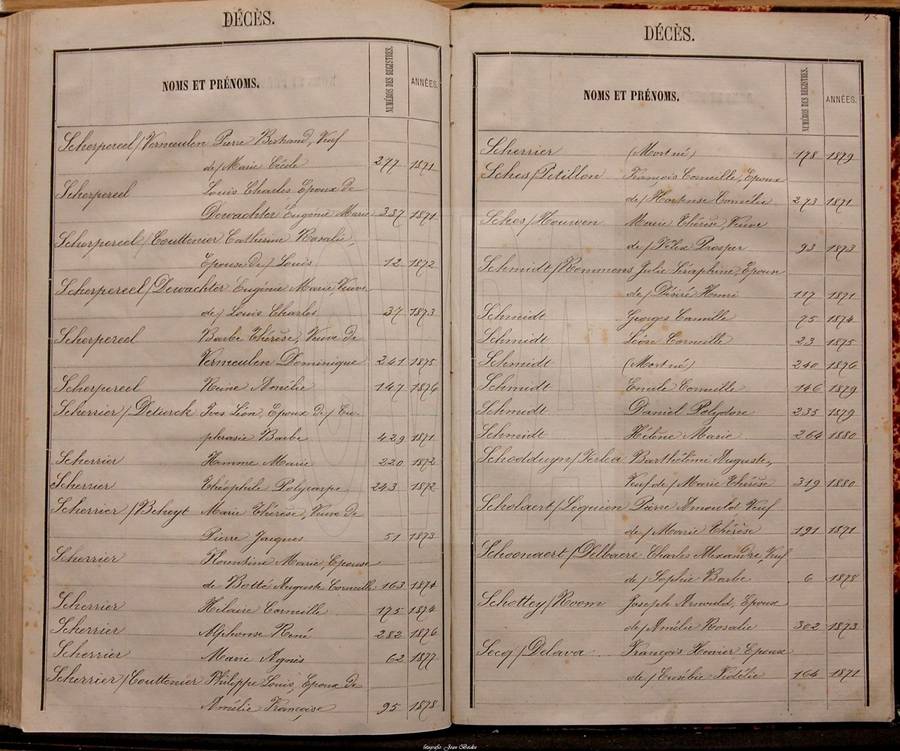 DÉCÈS.
NOMS ET PRÉNOMS. NUMÉROS DES REGISTRES. ANNÉES.
Scherpereel/Vermeulen Pierre Bertrand, Veuf
de/Marie Cécile 277 1871
Scherpereel Louis Charles Epoux de
Dewachter Eugénie Marie 337 1871
Scherpereel/Couttenier Catherine Rosalie,
Epouse de/Louis 12 1872
Scherpereel/Dewachter Eugénie Marie, Veuve
de/Louis Charles 37 1873
Scherpereel Barbe Thérèse, Veuve de
Vermeulen Dominique 241 1875
Scherpereel Amélie 147 1876
Scherrier/Deturck Yves Léon, Epoux de/Eu-
phrasie Barbe 429 1871
Scherrier Femme Marie 220 1872
Scherrier Théophile Polycarpe 243 1872
Scherrier/Beheyt Marie Thérèse, Veuve de
Pierre Jacques 51 1873
Scherrier Florentine Marie, Epouse
de Botté Auguste Corneille 163 1874
Scherrier Hilaire Corneille 175 1874
Scherrier Alphonse René 282 1876
Scherrier Marie Agnès 62 1877
Scherrier/Couttenier Philippe Louis, Epoux de
Amélie Françoise 95 1878
DÉCÈS.
NOMS ET PRÉNOMS. NUMÉROS DES REGISTRES. ANNÉES.
Scherrier (Mort né) 178 1879
Sches/Petillon François Corneille, Epoux
de/Hortense Cornélie 273 1871
Sches/Houwen Marie Thérèse, Veuve
de/Félix Prosper 93 1873
Schmidt/Rommens Julie Séraphine, Epoux
de/Désiré Henri 117 1871
Schmidt Georges Camille 75 1874
Schmidt Léon Corneille 23 1875
Schmidt (Mort né) 240 1876
Schmidt Emile Corneille 146 1879
Schmidt Daniel Polydore 235 1879
Schmidt Hélène Marie 264 1880
Schodduyn/Ferla Barthélémi Auguste,
Veuf de/Marie Thérèse 319 1880
Scholaert/Lequien Pierre Arnould Veuf
de/Marie Thérèse 191 1871
Schoonaert/Delbaere Charles Alexandre, Veuf
de/Sophie Barbe 6 1878
Schottey/Room Joseph Arnould, Epoux
de/Amélie Rosalie 302 1873
Secq/Delava François Xavier Epoux
de/Eusébie Fidélie 164 1871